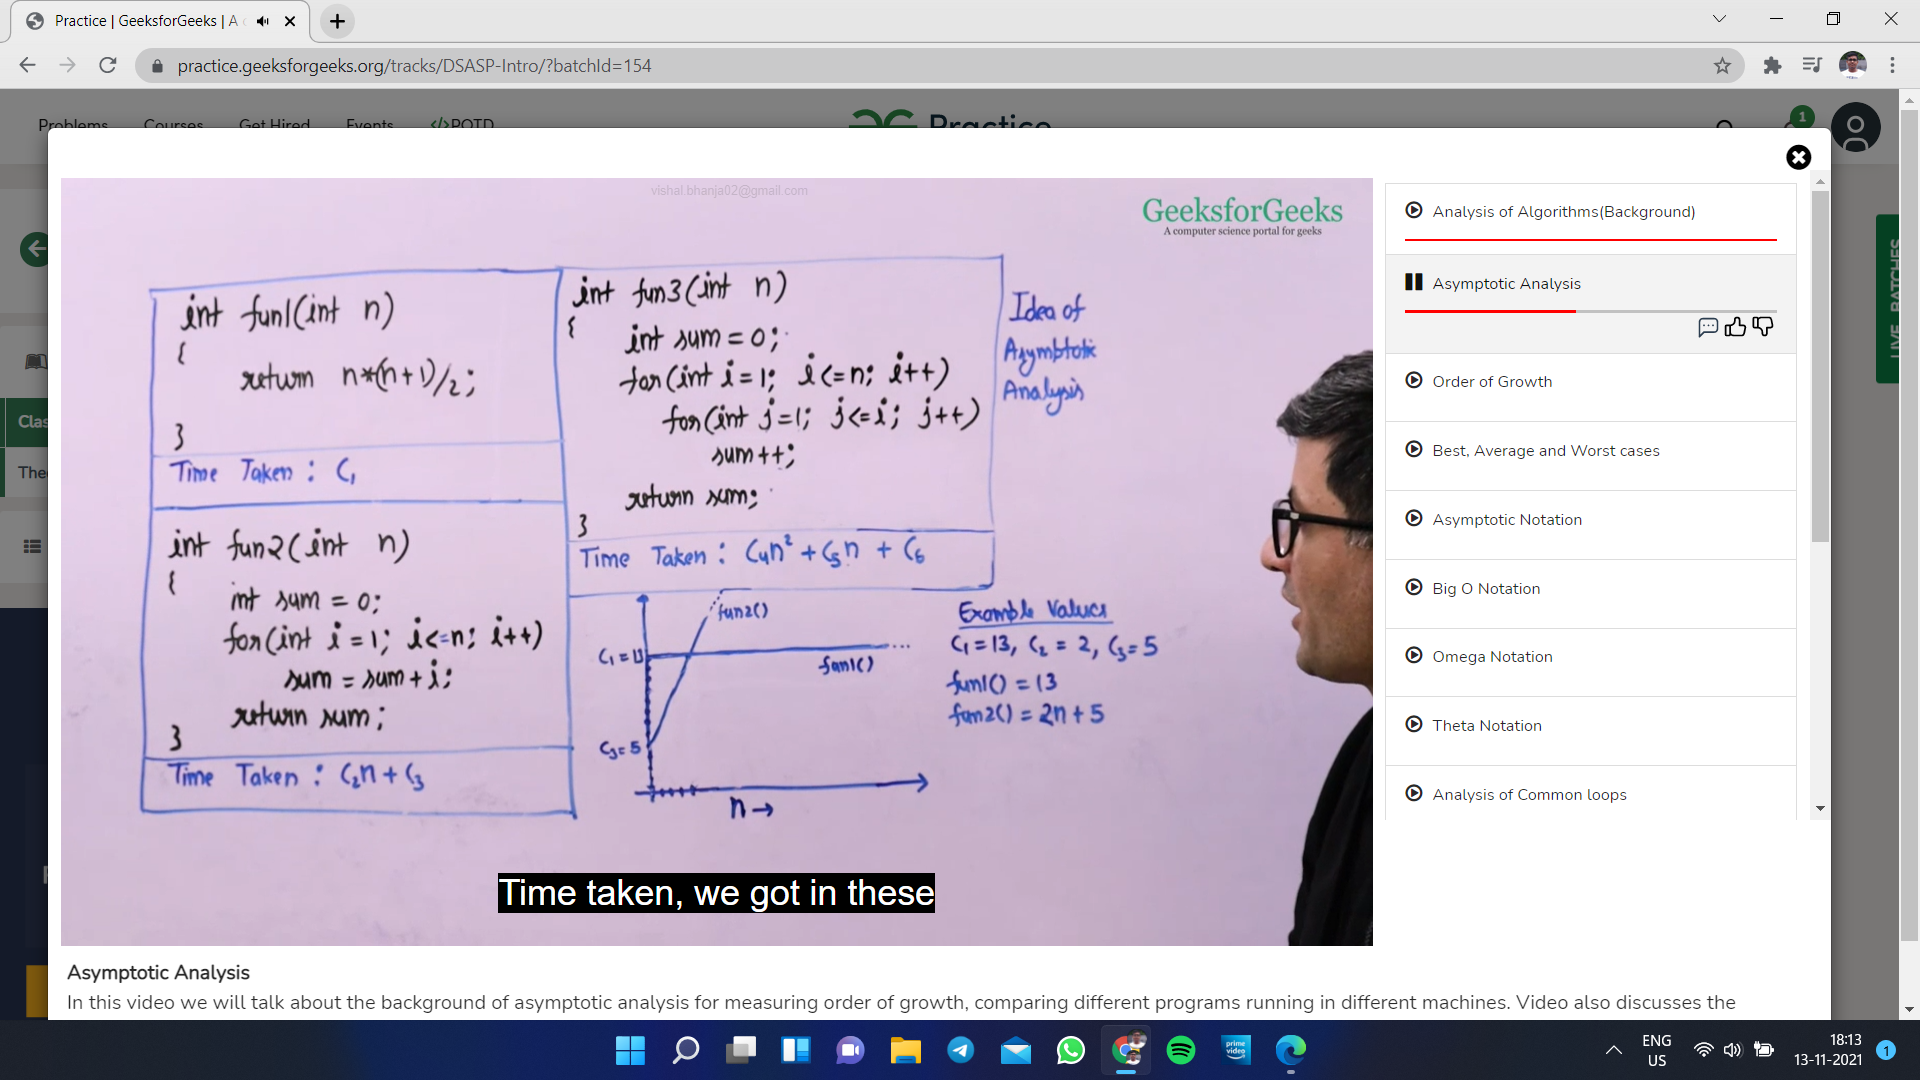 Practice | GeeksforGeeks | A
practice.geeksforgeeks.org/tracks/DSASP-Intro/?batchId=154
Problems Courses Get Hired Events </>POTD Practice
1
vishal.bhanja02@gmail.com
GeeksforGeeks
A computer science portal for geeks
int fun1(int n)
{
return n*(n+1)/2;
}
Time Taken : C1
int fun2(int n)
{
int sum = 0;
for(int i = 1; i<=n; i++)
sum = sum + i;
return sum;
}
Time Taken : C2n + C3
int fun3(int n)
{
int sum = 0;
for(int i = 1; i<=n; i++)
for(int j = 1; j<=i; j++)
sum++;
return sum;
}
Time Taken : C4n² + C5n + C6
Idea of
Asymptotic
Analysis
fun2()
C1 = 13
fun1()
C3 = 5
n →
Example Values
C1 = 13, C2 = 2, C3 = 5
fun1() = 13
fun2() = 2n + 5
Time taken, we got in these
Analysis of Algorithms(Background)
Asymptotic Analysis
Order of Growth
Best, Average and Worst cases
Asymptotic Notation
Big O Notation
Omega Notation
Theta Notation
Analysis of Common loops
LIVE BATCHES
Clas
The
Asymptotic Analysis
In this video we will talk about the background of asymptotic analysis for measuring order of growth, comparing different programs running in different machines. Video also discusses the
prime video
ENG
US
18:13
13-11-2021
1